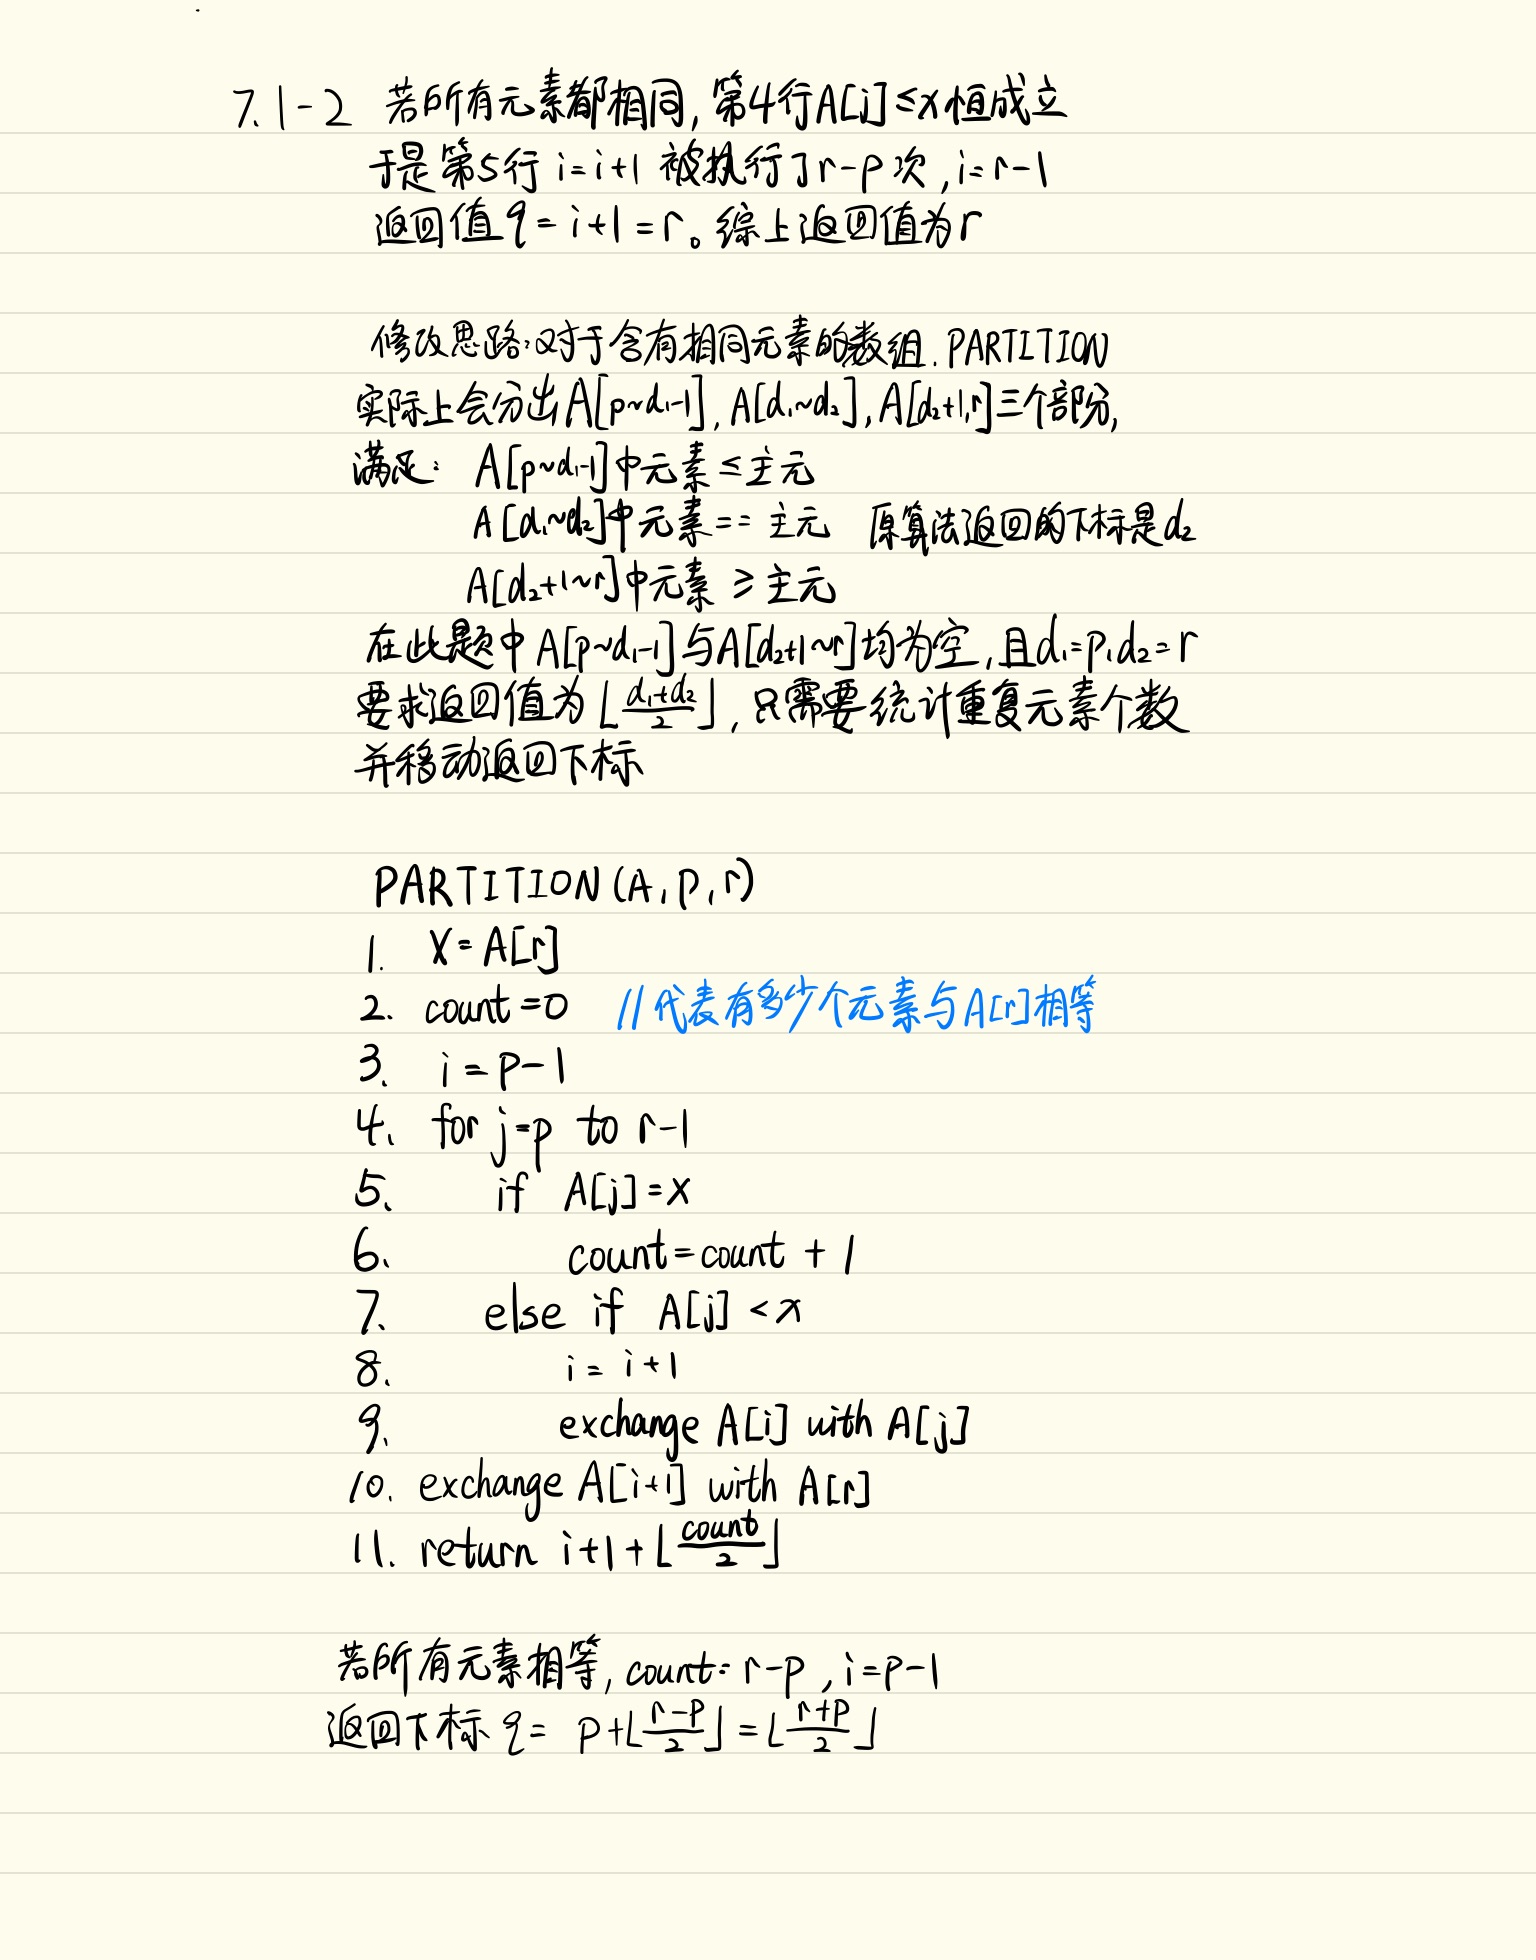 7.1-2 若所有元素都相同,第4行A[j]≤x恒成立
于是第5行i=i+1被执行了r-p次,i=r-1
返回值q=i+1=r。综上返回值为r
修改思路:对于含有相同元素的数组.PARTITION
实际上会分出A[p~d₁-1],A[d₁~d₂],A[d₂+1,r]三个部分,
满足: A[p~d₁-1]中元素≤主元
A[d₁~d₂]中元素==主元 原算法返回的下标是d₂
A[d₂+1~r]中元素≥主元
在此题中A[p~d₁-1]与A[d₂+1~r]均为空,且d₁=p,d₂=r
要求返回值为⌊(d₁+d₂)/2⌋,只需要统计重复元素个数
并移动返回下标
PARTITION(A,p,r)
1. x=A[r]
2. count=0 //代表有多少个元素与A[r]相等
3. i=p-1
4. for j=p to r-1
5. if A[j]=x
6. count=count+1
7. else if A[j]<x
8. i=i+1
9. exchange A[i] with A[j]
10. exchange A[i+1] with A[r]
11. return i+1+⌊count/2⌋
若所有元素相等,count=r-p,i=p-1
返回下标q= p+⌊(r-p)/2⌋=⌊(r+p)/2⌋